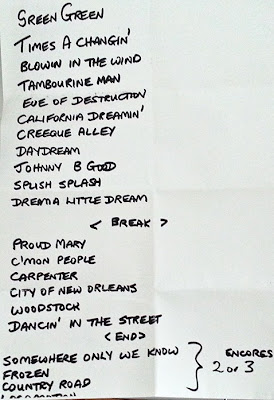 GREEN GREEN
TIMES A CHANGIN'
BLOWIN IN THE WIND
TAMBOURINE MAN
EVE OF DESTRUCTION
CALIFORNIA DREAMIN'
CREEQUE ALLEY
DAYDREAM
JOHNNY B GOOD
SPLISH SPLASH
DREAM A LITTLE DREAM
< BREAK >
PROUD MARY
C'MON PEOPLE
CARPENTER
CITY OF NEW ORLEANS
WOODSTOCK
DANCIN' IN THE STREET
<END>
SOMEWHERE ONLY WE KNOW
FROZEN
COUNTRY ROAD
ENCORES
2 or 3